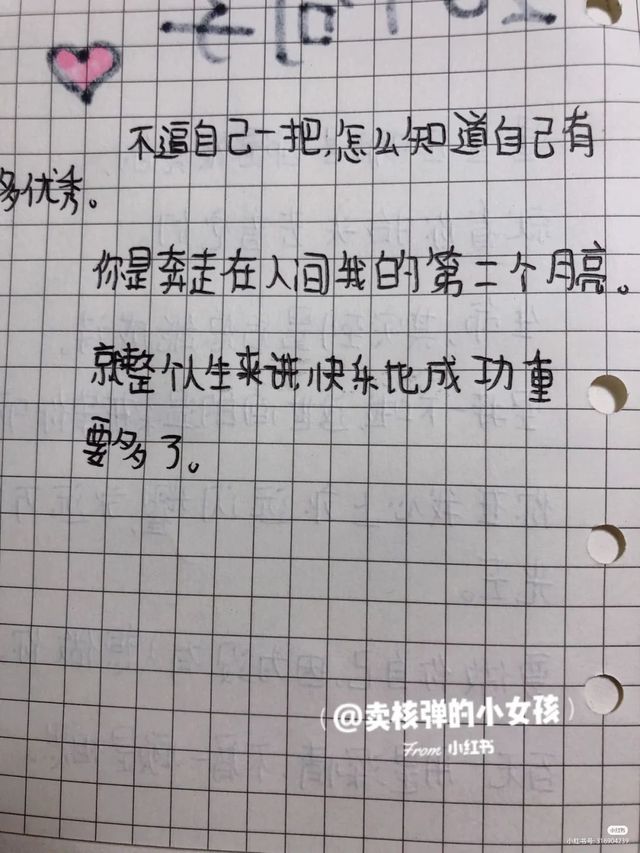 不逼自己一把,怎么知道自己有
多优秀。
你是奔走在人间我的第二个月亮。
就整个人生来讲,快乐比成功重
要多了。
@卖核弹的小女孩
From 小红书
小红书
小红书号:316904239